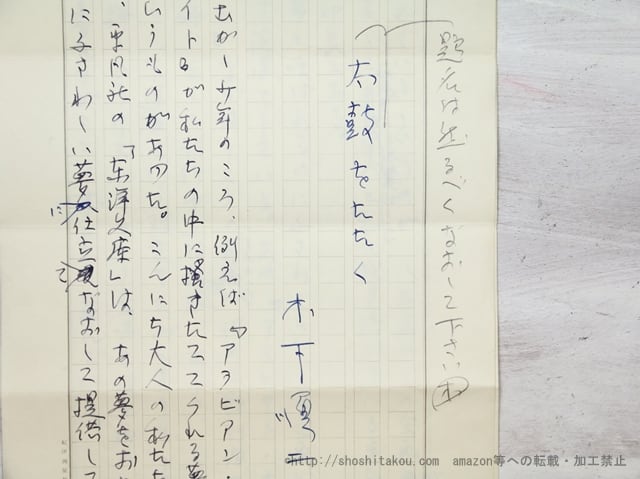 題名は然るべくなおして下さい 木
太鼓をたたく
木下順二
むかし少年のころ、例えば『アラビアン・
イト』が私たちの中に掻きたててくれる夢
いうものがあった。こんにち大人の私たち
、平凡社の「東洋文庫」は、あの夢をお
にふさわしい夢に仕立てなおして提供して
©http://shoshitakou.com amazon等への転載・加工禁止